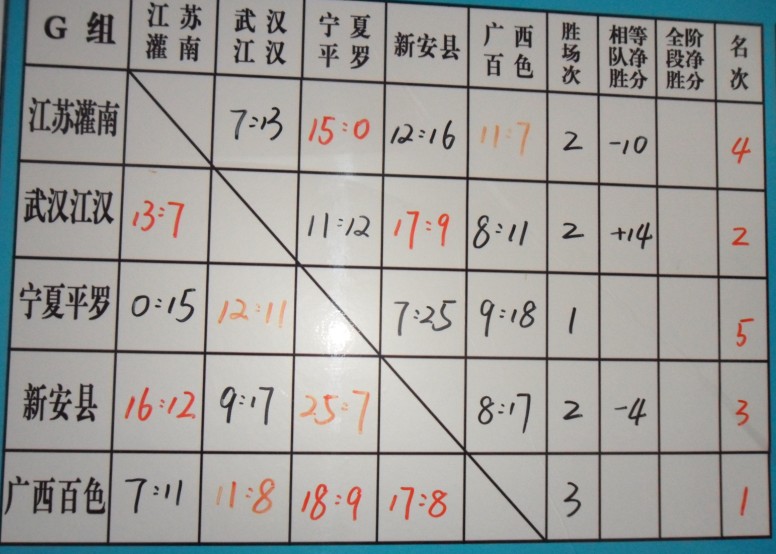 G 组 江 苏 灌 南 武 汉 江 汉 宁 夏 平 罗 新安县 广 西 百 色 胜场次 相等队净胜分 全阶段净胜分 名次
江苏灌南 7:13 15:0 12:16 11:7 2 -10 4
武汉江汉 13:7 11:12 17:9 8:11 2 +14 2
宁夏平罗 0:15 12:11 7:25 9:18 1 5
新安县 16:12 9:17 25:7 8:17 2 -4 3
广西百色 7:11 11:8 18:9 17:8 3 1